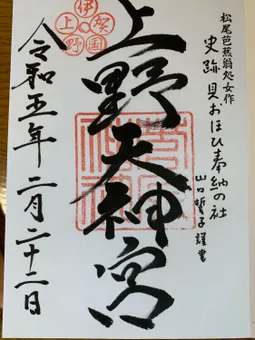 松尾芭蕉翁処女作
史跡 貝おほひ奉納の社
山口誓子謹書
上野天神宮
伊賀国上野
令和五年二月二十二日